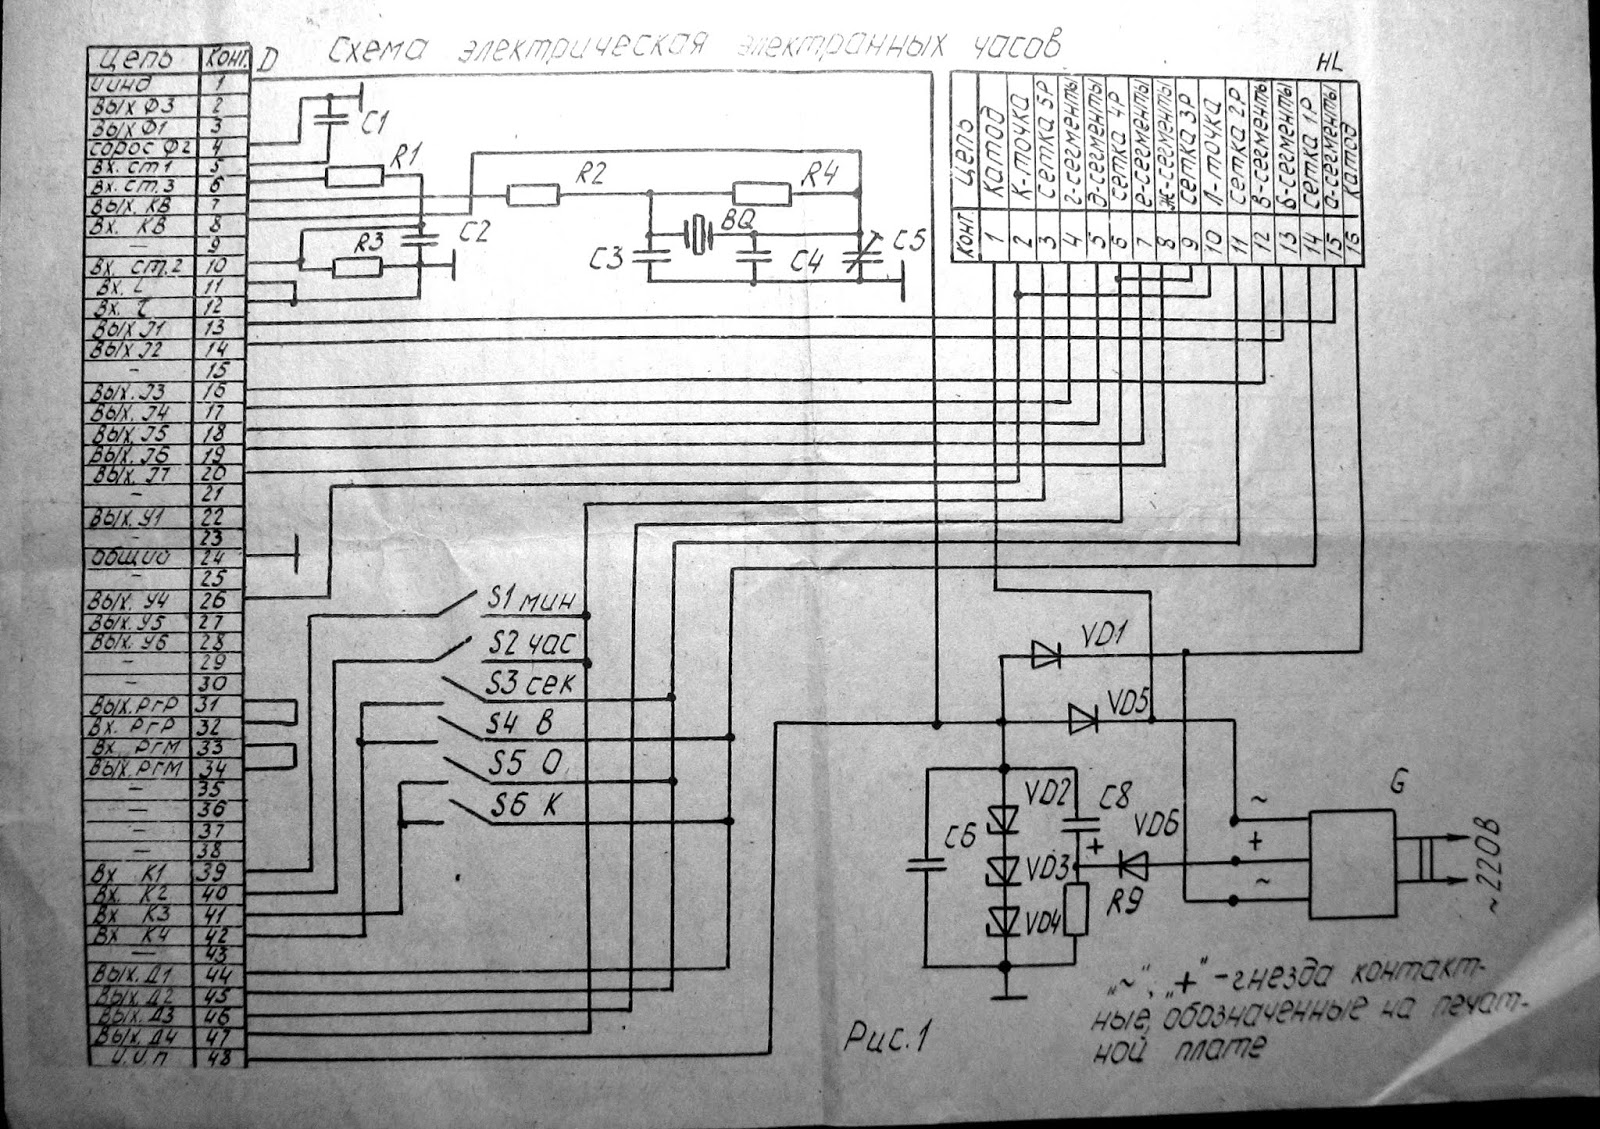 Схема электрическая электранных часов
Цепь Конт. D
Uинд 1
Вых Ф3 2
Вых Ф1 3
сброс Ф2 4
Вх. ст1 5
Вх. ст.3 6
Вых. КВ 7
Вх. КВ 8
— 9
Вх. ст.2 10
Вх. L 11
Вх. τ 12
Вых J1 13
Вых J2 14
- 15
Вых. J3 16
Вых. J4 17
Вых. J5 18
Вых. J6 19
Вых. J7 20
- 21
Вых. У1 22
- 23
общий 24
- 25
Вых. У4 26
Вых. У5 27
Вых. У6 28
- 29
- 30
Вых. РгР 31
Вх. РгР 32
Вх РгМ 33
Вых. РгМ 34
- 35
— 36
- 37
— 38
Вх К1 39
Вх. К2 40
Вх К3 41
Вх К4 42
— 43
Вых. Д1 44
Вых. Д2 45
Вых. Д3 46
Вых. Д4 47
U.U.п 48
C1
R1
R2
R4
R3
C2
C3
BQ
C4
C5
HL
Конт. Цепь
1 Катод
2 К-точка
3 сетка 5Р
4 г-сегменты
5 д-сегменты
6 сетка 4Р
7 е-сегменты
8 ж-сегменты
9 сетка 3Р
10 Л-точка
11 сетка 2Р
12 в-сегменты
13 б-сегменты
14 сетка 1Р
15 а-сегменты
16 Катод
S1 мин
S2 час
S3 сек
S4 В
S5 О
S6 К
VD1
VD5
VD2
C8
C6
VD3
+
VD6
VD4
R9
~
+
~
G
~220В
„~“, „+“ -гнезда контакт-
ные, обозначенные на печат-
ной плате
Рис.1